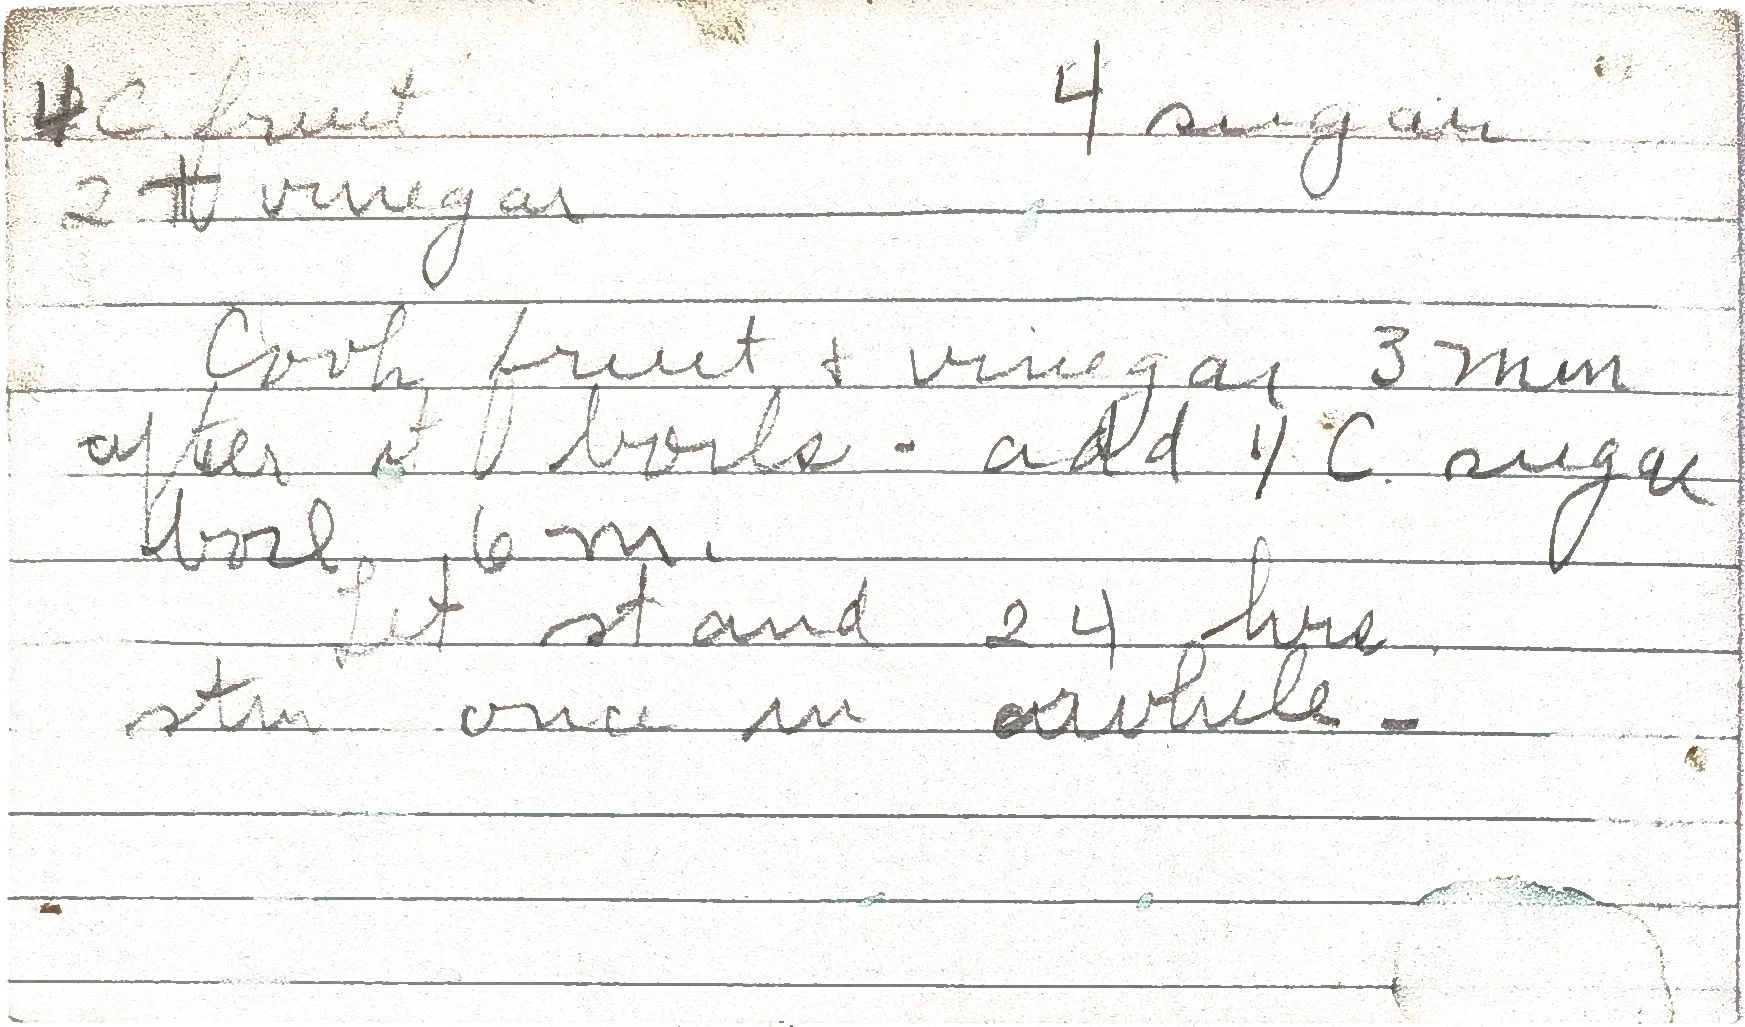 4 C. fruit 4 sugar
2 T vinegar
Cook fruit + vinegar 3 min
after it boils - add 4 C. sugar
boil 6 m.
Let stand 24 hrs.
stir once in awhile -